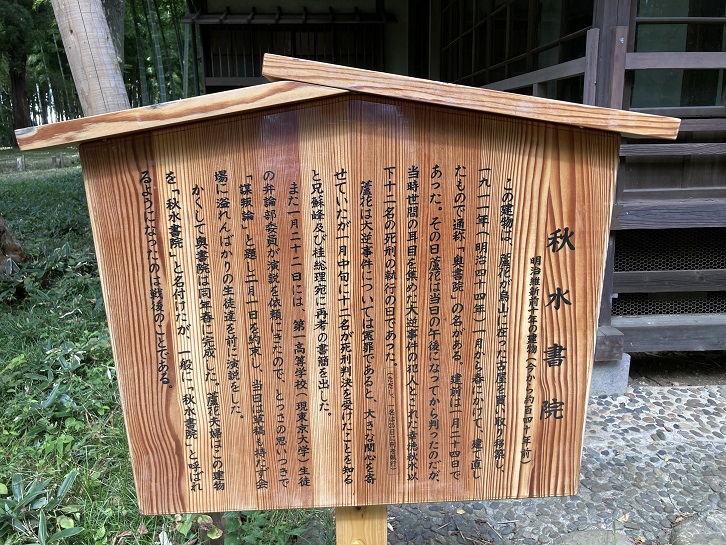 秋水書院
明治維新前十年の建物(今から約百四十年前)
この建物は、蘆花が烏山に在った古屋を買い取り移築し、
一九一一年(明治四十四年)一月から春にかけて、建て直し
たもので通称「奥書院」の名がある。建前は一月二十四日で
あった。その日蘆花は当日の午後になってから判ったのだが、
当時世間の耳目を集めた大逆事件の犯人とされた幸徳秋水以
下十二名の死刑の執行の日であった。
蘆花は大逆事件については冤罪であると、大きな関心を寄
せていたが一月中旬に十二名が死刑判決を受けたことを知る
と兄蘇峰及び桂総理宛に再考の書簡を出した。
また一月二十二日には、第一高等学校(現東京大学)生徒
の弁論部委員が演説を依頼にきたので、とっさの思いつきで
「謀叛論」と題し二月一日を約束し、当日は草稿も持たず会
場に溢れんばかりの生徒達を前に演説をした。
かくして奥書院は同年春に完成した。蘆花夫婦はこの建物
を「秋水書院」と名付けたが、一般に「秋水書院」と呼ばれ
るようになったのは戦後のことである。